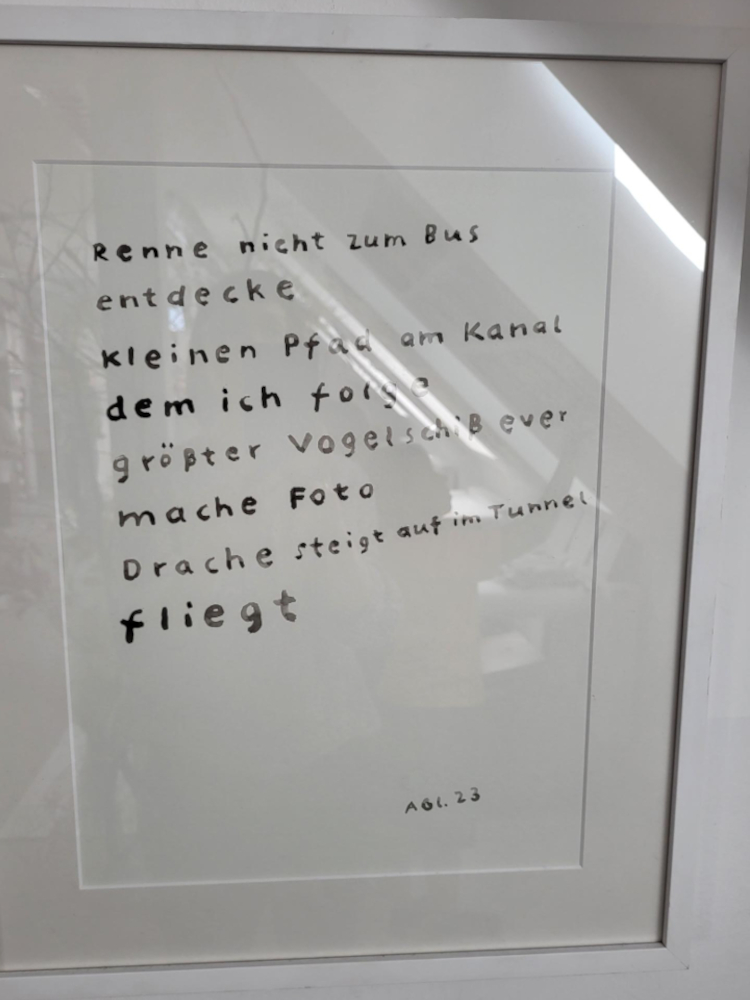 Renne nicht zum Bus
entdecke
kleinen Pfad am Kanal
dem ich folge
größter Vogelschiß ever
mache Foto
Drache steigt auf im Tunnel
fliegt
AGL. 23